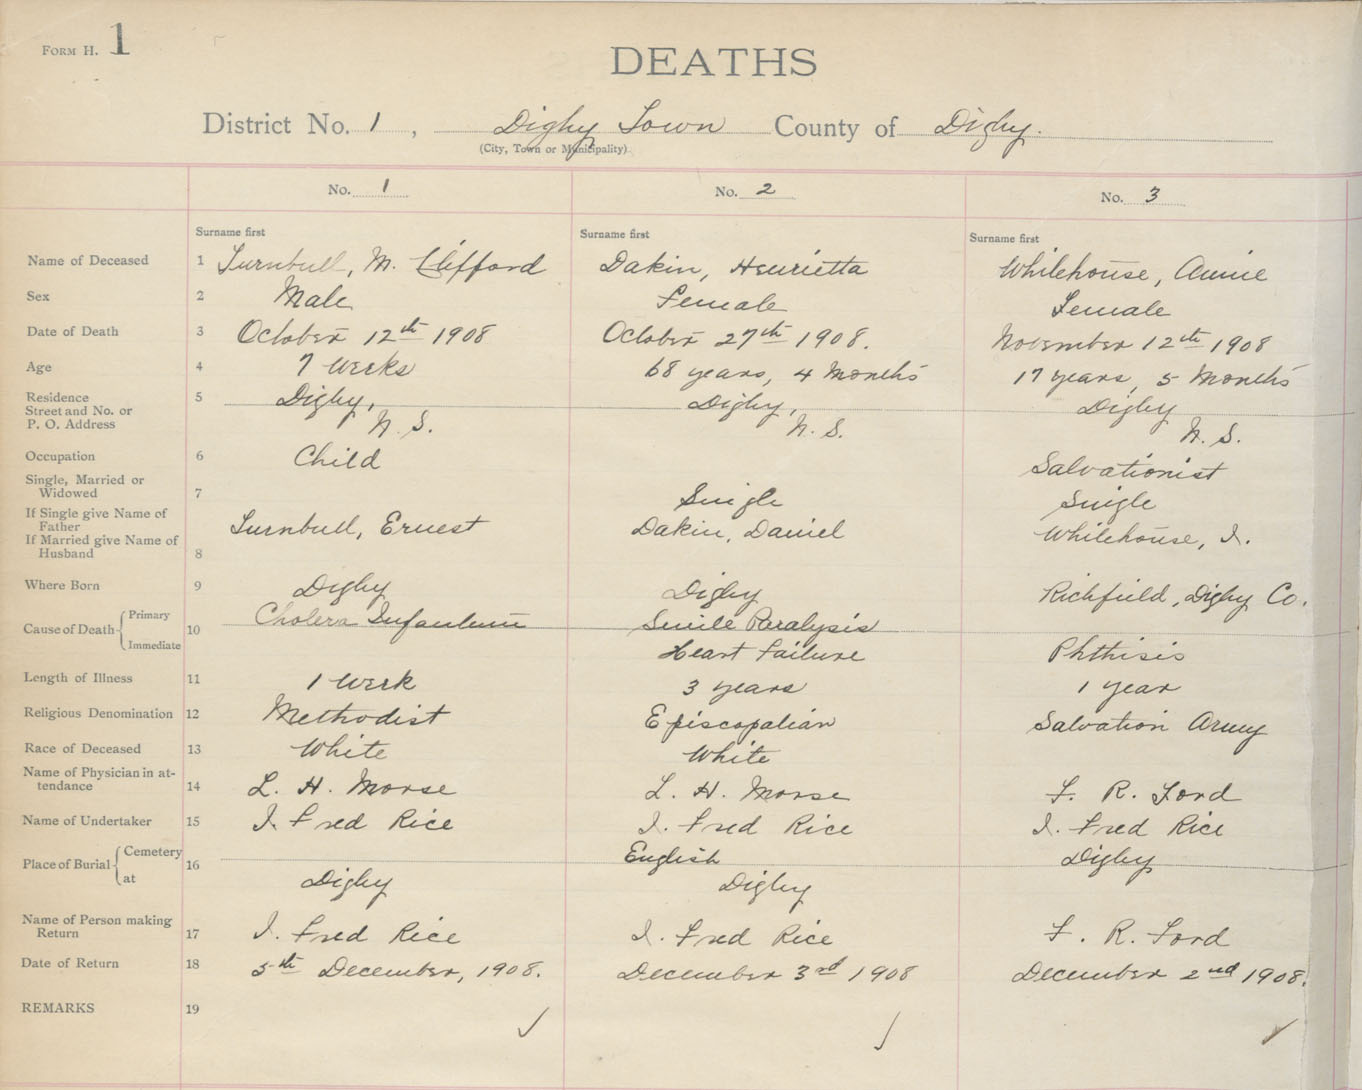 FORM H. 1
DEATHS
District No. 1, Digby Town County of Digby.
(City, Town or Municipality)
No. 1 No. 2 No. 3
Surname first Surname first Surname first
Name of Deceased 1 Turnbull, M. Clifford Dakin, Henrietta Whitehouse, Annie
Sex 2 Male Female Female
Date of Death 3 October 12th 1908 October 27th 1908. November 12th 1908
Age 4 7 weeks 68 years, 4 Months 17 years, 5 Months
Residence 5 Digby, Digby, Digby
Street and No. or
P. O. Address N. S. N. S. N. S.
Occupation 6 Child Salvationist
Single, Married or
Widowed 7 Single Single
If Single give Name of
Father Turnbull, Ernest Dakin, Daniel Whitehouse, I.
If Married give Name of
Husband 8
Where Born 9 Digby Digby Richfield, Digby Co.
Cause of Death 10
Primary Cholera Infantum Senile Paralysis
Immediate Heart Failure Phthisis
Length of Illness 11 1 Week 3 years 1 year
Religious Denomination 12 Methodist Episcopalian Salvation Army
Race of Deceased 13 White White
Name of Physician in at-
tendance 14 L. H. Morse L. H. Morse F. R. Ford
Name of Undertaker 15 I. Fred Rice I. Fred Rice I. Fred Rice
Place of Burial 16
Cemetery English Digby
at Digby Digby
Name of Person making
Return 17 I. Fred Rice I. Fred Rice F. R. Ford
Date of Return 18 5th December, 1908. December 3rd 1908 December 2nd 1908.
REMARKS 19